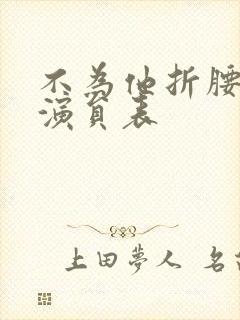 不為他折腰
演員表
上田夢人 名